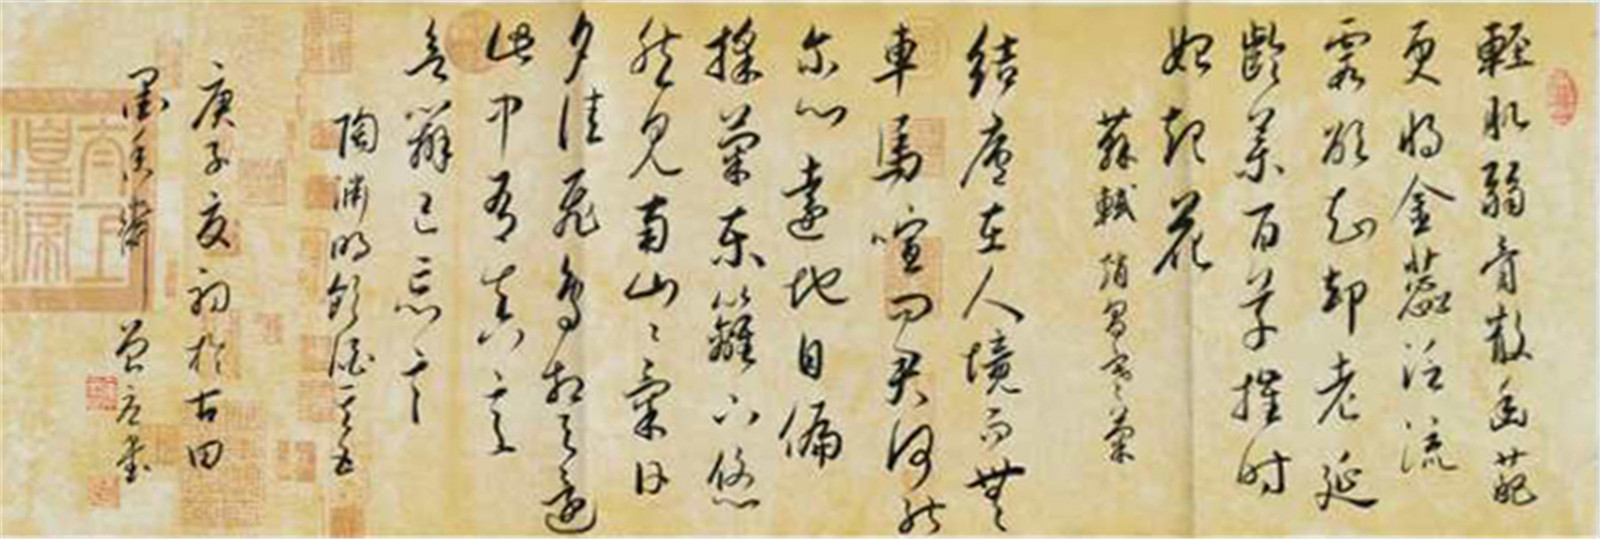 輕肌弱骨散幽葩
更將金蕊泛流
霞欲知却老延
齡藥百草摧時
始起花
蘇軾 趙昌寒菊
結廬在人境而無
車馬喧問君何能
尔心遠地自偏
採菊東籬下悠
然見南山山氣日
夕佳飛鳥相與還
此中有真意
欲辨已忘言
陶淵明飲酒其五
庚子夏初於古田
墨香齋